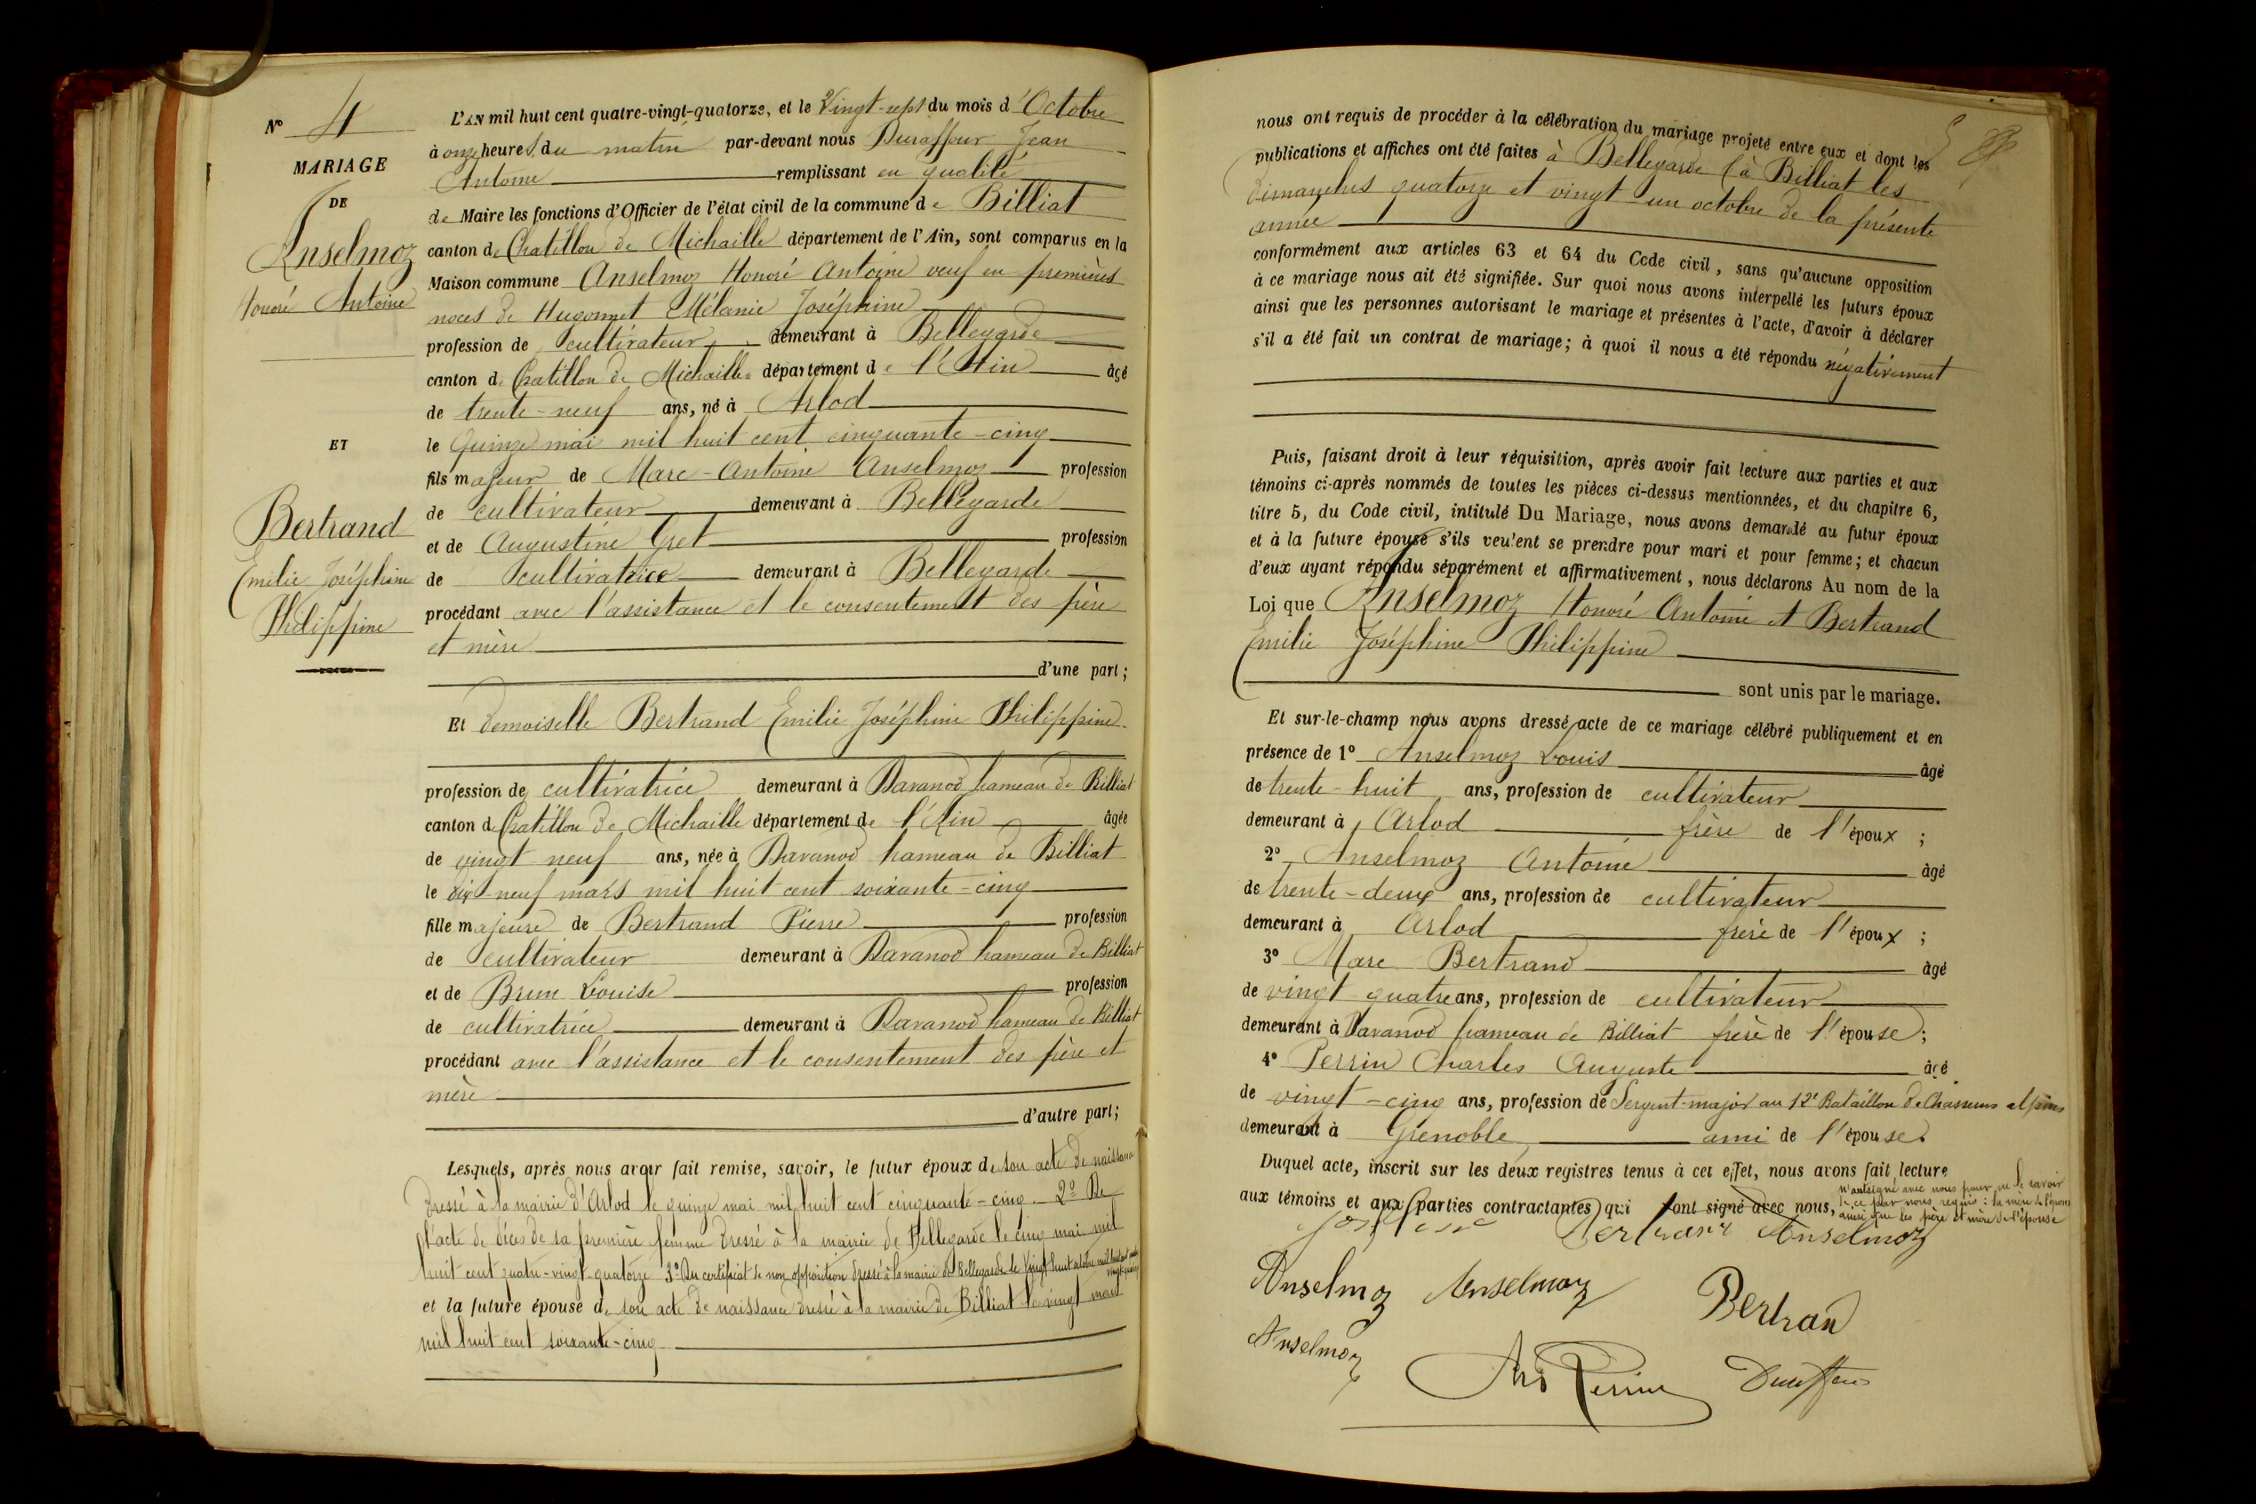 N° 4
MARIAGE
DE
Anselmoz
Honoré Antoine
ET
Bertrand
Emilie Joséphine
Philippine
L'AN mil huit cent quatre-vingt-quatorze, et le Vingt-sept du mois d'Octobre
à onze heures du matin par-devant nous Duraffour Jean
Antoine remplissant en qualité
de Maire les fonctions d'Officier de l'état civil de la commune de Billiat
canton de Chatillon de Michaille département de l'Ain, sont comparus en la
Maison commune Anselmoz Honoré Antoine veuf en premières
noces de Hugonnet Mélanie Joséphine
profession de cultivateur demeurant à Bellegarde
canton de Chatillon de Michaille département de l'Ain âgé
de trente-neuf ans, né à Arlod
le Quinze mai mil huit cent cinquante-cinq
fils majeur de Marc-Antoine Anselmoz profession
de cultivateur demeurant à Bellegarde
et de Augustine Gret profession
de cultivatrice demeurant à Bellegarde
procédant avec l'assistance et le consentement des père
et mère
d'une part;
Et demoiselle Bertrand Emilie Joséphine Philippine
profession de cultivatrice demeurant à Davanod hameau de Billiat
canton de Chatillon de Michaille département de l'Ain âgée
de vingt neuf ans, née à Davanod hameau de Billiat
le dix neuf mars mil huit cent soixante-cinq
fille majeure de Bertrand Pierre profession
de cultivateur demeurant à Davanod hameau de Billiat
et de Brun Louise profession
de cultivatrice demeurant à Davanod hameau de Billiat
procédant avec l'assistance et le consentement des père et
mère
d'autre part;
Lesquels, après nous avoir fait remise, savoir, le futur époux de son acte de naissance
dressé à la mairie d'Arlod le quinze mai mil huit cent cinquante-cinq 2° De
l'acte de décès de sa première femme dressé à la mairie de Bellegarde le cinq mai mil
huit cent quatre-vingt-quatorze 3° Du certificat de non opposition dressé à la mairie de Bellegarde le vingt huit octobre mil huit cent
et la future épouse de son acte de naissance dressé à la mairie de Billiat le vingt mars
mil huit cent soixante-cinq
nous ont requis de procéder à la célébration du mariage projeté entre eux et dont les
publications et affiches ont été faites à Bellegarde & à Billiat les
dimanches quatorze et vingt un octobre de la présente
année
conformément aux articles 63 et 64 du Code civil, sans qu'aucune opposition
à ce mariage nous ait été signifiée. Sur quoi nous avons interpellé les futurs époux
ainsi que les personnes autorisant le mariage et présentes à l'acte, d'avoir à déclarer
s'il a été fait un contrat de mariage; à quoi il nous a été répondu négativement
Puis, faisant droit à leur réquisition, après avoir fait lecture aux parties et aux
témoins ci-après nommés de toutes les pièces ci-dessus mentionnées, et du chapitre 6,
titre 5, du Code civil, intitulé Du Mariage, nous avons demandé au futur époux
et à la future épouse s'ils veulent se prendre pour mari et pour femme; et chacun
d'eux ayant répondu séparément et affirmativement, nous déclarons Au nom de la
Loi que Anselmoz Honoré Antoine et Bertrand
Emilie Joséphine Philippine
sont unis par le mariage.
Et sur-le-champ nous avons dressé acte de ce mariage célébré publiquement et en
présence de 1° Anselmoz Louis âgé
de trente-huit ans, profession de cultivateur
demeurant à Arlod frère de l'époux;
2° Anselmoz Antoine âgé
de trente-deux ans, profession de cultivateur
demeurant à Arlod frère de l'époux;
3° Marc Bertrand âgé
de vingt quatre ans, profession de cultivateur
demeurant à Davanod hameau de Billiat frère de l'épouse;
4° Perrin Charles Auguste âgé
de vingt-cinq ans, profession de Sergent-major au 12e Bataillon de Chasseurs alpins
demeurant à Grenoble ami de l'épouse.
Duquel acte, inscrit sur les deux registres tenus à cet effet, nous avons fait lecture
aux témoins et aux parties contractantes qui sont signé avec nous,
n'ont signé avec nous pour ne le savoir
de ce par nous requis: la mère de l'époux
ainsi que les père et mère de l'épouse
Bertrand Anselmoz
Anselmoz Anselmoz Bertran
Anselmoz Perrin Duraffour